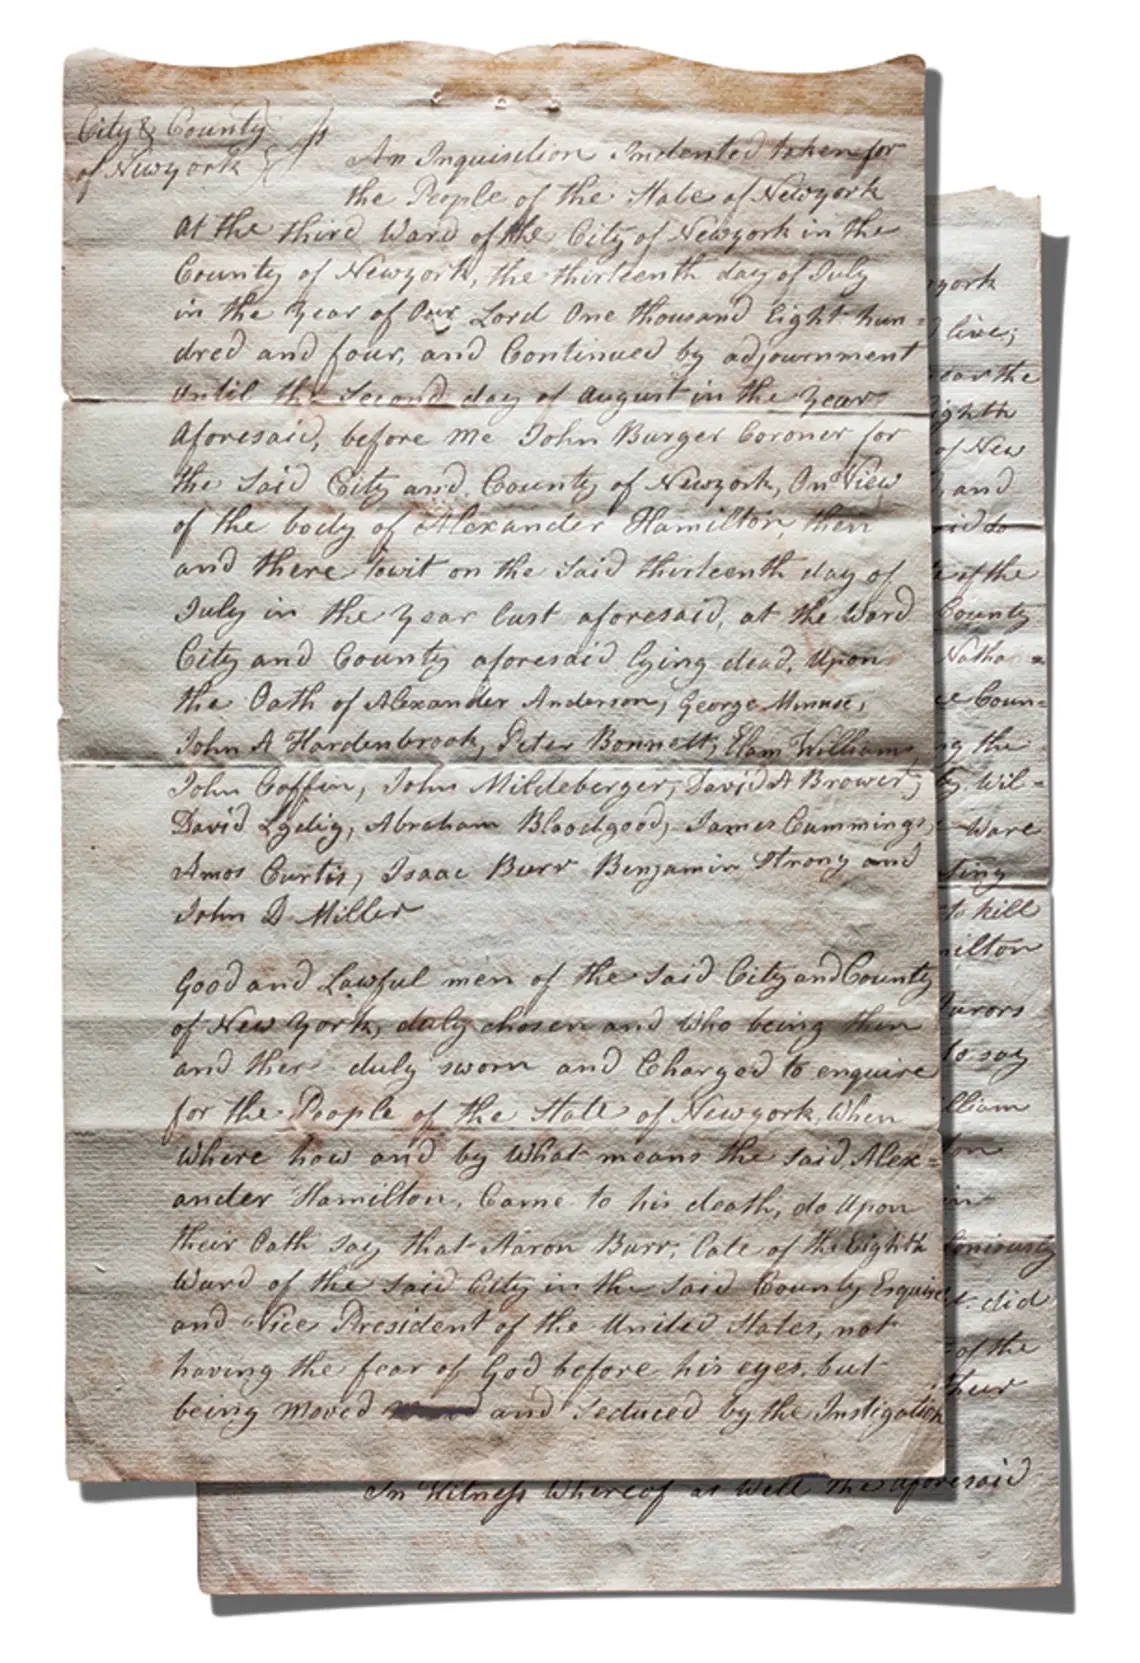 City & County
of Newyork } ss
An Inquisition Indented taken for
the People of the State of Newyork
at the third Ward of the City of Newyork in the
County of Newyork, the thirteenth day of July
in the Year of Our Lord One thousand Eight hun=
dred and four, and Continued by adjournment
until the Second day of August in the Year
Aforesaid, before me John Burger Coroner for
the Said City and County of Newyork, On View
of the body of Alexander Hamilton, then
and there towit on the Said thirteenth day of
July in the Year last aforesaid, at the Ward
City and County aforesaid lying dead, Upon
the Oath of Alexander Anderson, George Minuse,
John A Hardenbrook, Peter Bonnett, Elam Williams,
John Coffin, John Mildeberger, David A Brower,
David Lydig, Abraham Bloodgood, James Cummings,
Amos Curtis, Isaac Burr Benjamin Strong and
John D Miller
Good and Lawful men of the Said City and County
of New York, duly chosen and Who being then
and there duly sworn and Charged to enquire
for the People of the State of Newyork, When
Where how and by What means the Said Alex=
ander Hamilton, Came to his death, do Upon
their Oath Say that Aaron Burr, late of the Eighth
Ward of the Said City in the Said County Esquire
and Vice President of the United States, not
having the fear of God before his eyes, but
being moved and Seduced by the Instigation
york
live;
near the
ighth
of New
and
id do
of the
County
Natha=
Coun=
the
Wil=
Ware
ting
to kill
ilton
Jurors
to say
lliam
ton
in
loniously
did
of the
their
In Witness Whereof as Well the aforesaid